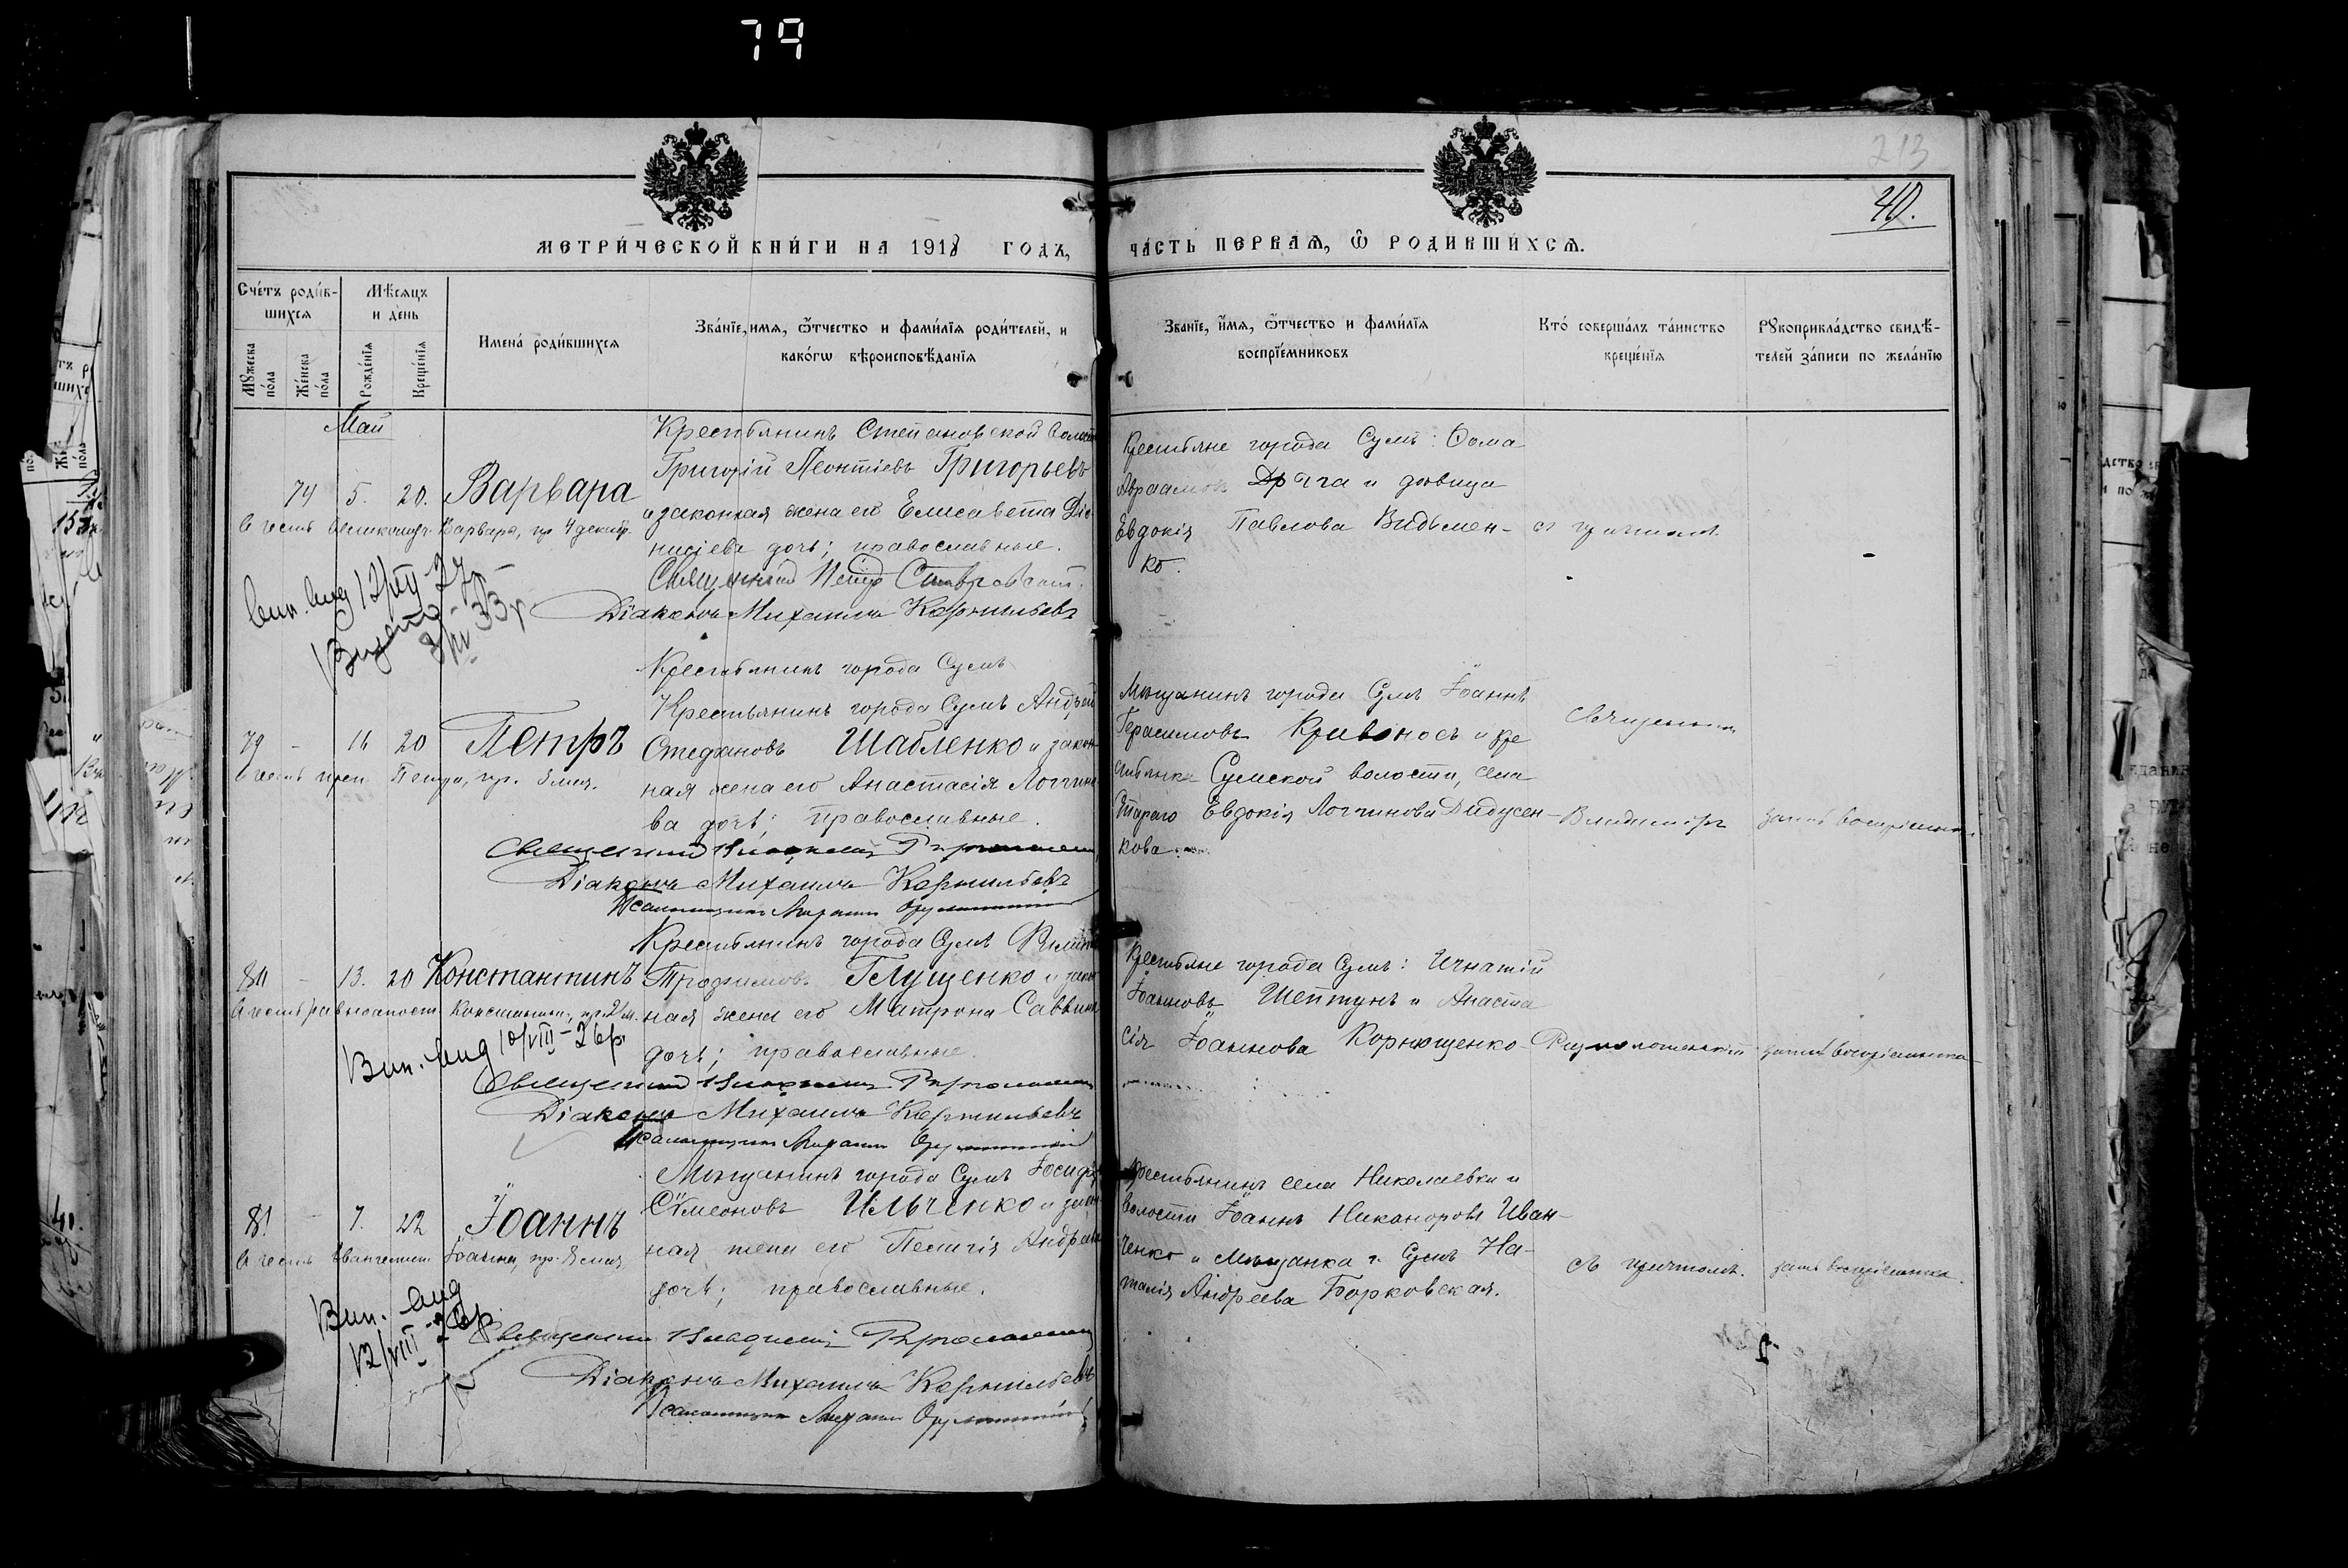 79
213
40.
МЕТРИ́ЧЕСКОЙ КНИ́ГИ НА 1918 ГОДЪ,
ЧА́СТЬ ПЕРВАѦ, Ѽ РОДИВШИ́ХСѦ.
Сче́тъ роди́в-
шихсѧ
Мѣ́сѧцъ
и де́нь
Мꙋ́жеска
по́ла
Же́нска
по́ла
Рожде́нїѧ
Креще́нїѧ
Имена̀ роди́вшихсѧ
Зва́нїе, имѧ, ѻ҆́тчество и фами́лїѧ роди́телей, и
како́гѡ вѣроисповѣ́данїѧ
Зва́нїе, и҆́мѧ, ѻ҆́тчество и фами́лїѧ
воспрїе́мниковъ
Кто̀ соверша́лъ та́инство
креще́нїѧ
Рꙋкоприкла́дство свидѣ́-
телей за́писи по жела́нїю
Май
74 5. 20. Варвара
Въ честь великомуч. Варвары, пр 4 декабр.
Крестьянинъ Степановской волости
Григорій Леонтіевъ Григорьевъ
и законная жена его Елисавета Діо-
нисіева дочь; православные.
Священникъ Петръ
Діаконъ Михаилъ Корнильевъ
Крестьяне города Сумъ: Ѳома
Авраамовъ и дѣвица
Евдокія Павлова Видьмен-
ко.
съ причтомъ
Вип. вид 12/VII 27
Видано
33р
Крестьянинъ города Сумъ
79 - 16 20 Петръ
Въ честь преп. Петра, пр.
Крестьянинъ города Сумъ Андрей
Стефановъ Шабленко и закон-
ная жена его Анастасія Логгино-
ва дочь; православные.
Священникъ Владиміръ
Діаконъ Михаилъ Корнильевъ
Псаломщикъ
Мѣщанинъ города Сумъ Іоаннъ
Герасимовъ Кривоносъ и кре
стьянка Сумской волости, села
Евдокія Логгинова Дидусен-
кова.
Священникъ
Владиміръ
за воспріемника
80 - 13. 20 Константинъ
Въ честь равноапост. Константина, пр. 21 м.
Крестьянинъ города Сумъ Филиппъ
Трофимовъ Глущенко и закон
ная жена его Матрона Саввина
дочь; православные.
Священникъ Владиміръ
Діаконъ Михаилъ Корнильевъ
Псаломщикъ
Крестьяне города Сумъ: Игнатій
Іоанновъ Шептунъ и Анаста
сія Іоаннова Корнющенко
за воспріемника
Вип. вид 10/VIII-26р.
81 - 7. 22 Іоаннъ
Въ честь Евангелист. Іоанна, пр. 8 мая
Мѣщанинъ города Сумъ Іосифъ
Сѵмеоновъ Ильченко и закон
ная жена его Пелагія Андреева
дочь; православные.
Священникъ Владиміръ
Діаконъ Михаилъ Корнильевъ
Псаломщикъ
Крестьянинъ села Николаевки и
волости Іоаннъ Никаноровъ Иван-
ченко и мѣщанка г. Сумъ На-
талія Андреева Борковская.
съ причтомъ.
за воспріемника.
Вип. вид
12/VIII-26р.